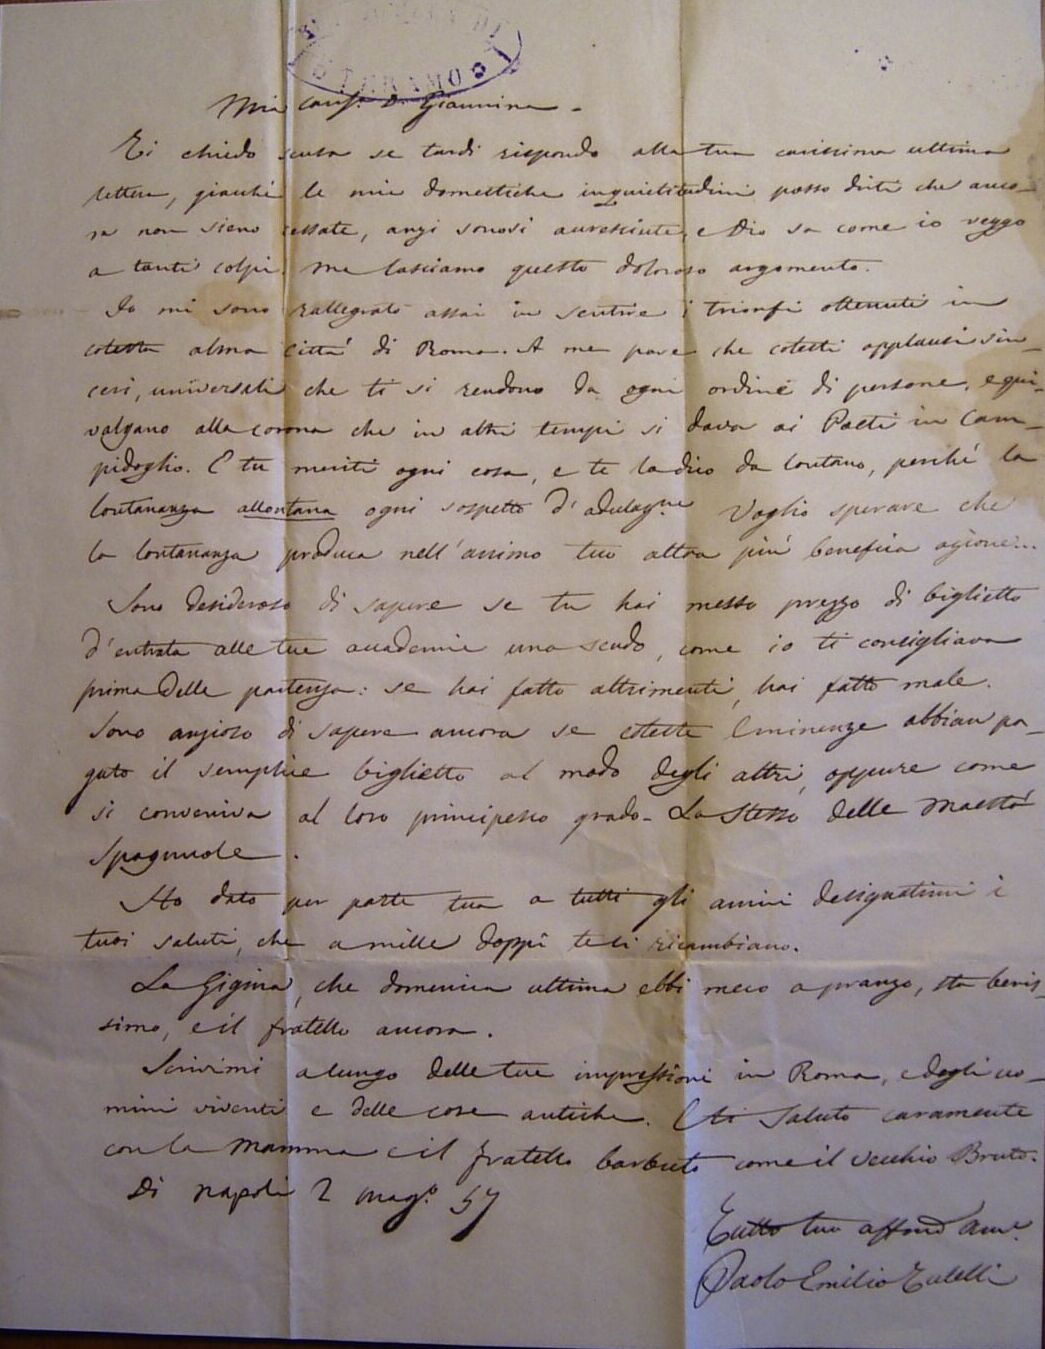 TERAMO
Mia cariss. D. Giannina -
Ti chiedo scusa se tardi rispondo alla tua carissima ultima
lettera, giacchè le mie domestiche inquietitudini posso dirti che anco-
ra non sieno cessate, anzi sonosi accresciute, e Dio sa come io reggo
a tanti colpi. Ma lasciamo questo doloroso argomento.
Io mi sono rallegrato assai in sentire i trionfi ottenuti in
cotesta alma città di Roma. A me pare che cotesti applausi sin-
ceri, universali che ti si rendono da ogni ordine di persone, equi-
valgano alla corona che in altri tempi si dava ai Poeti in Cam-
pidoglio. E tu meriti ogni cosa, e te lo dico da lontano, perchè la
lontananza allontana ogni sospetto d'adulaz.ne Voglio sperare che
la lontananza produca nell'animo tuo altra più benefica azione...
Sono desideroso di sapere se tu hai messo prezzo di biglietto
d'entrata alle tue accademie uno scudo, come io ti consigliava
prima della partenza: se hai fatto altrimenti, hai fatto male.
Sono anzioso di sapere ancora se coteste Eminenze abbian pa-
gato il semplice biglietto al modo degli altri, oppure come
si conveniva al loro principesco grado. Lo stesso delle Maestà
Spagnuole.
Ho dato per parte tua a tutti gli amici designatimi i
tuoi saluti, che a mille doppî te li ricambiano.
La Gigina, che domenica ultima ebbi meco a pranzo, sta benis-
simo, e il fratello ancora.
Scrivimi a lungo delle tue impressioni in Roma, e degli uo-
mini viventi e delle cose antiche. E ti saluto caramente
con la Mamma e il fratello barbuto come il vecchio Bruto.
Di Napoli 2 mag.o 57
Tutto tuo affmo am.o
Paolo Emilio Tulelli